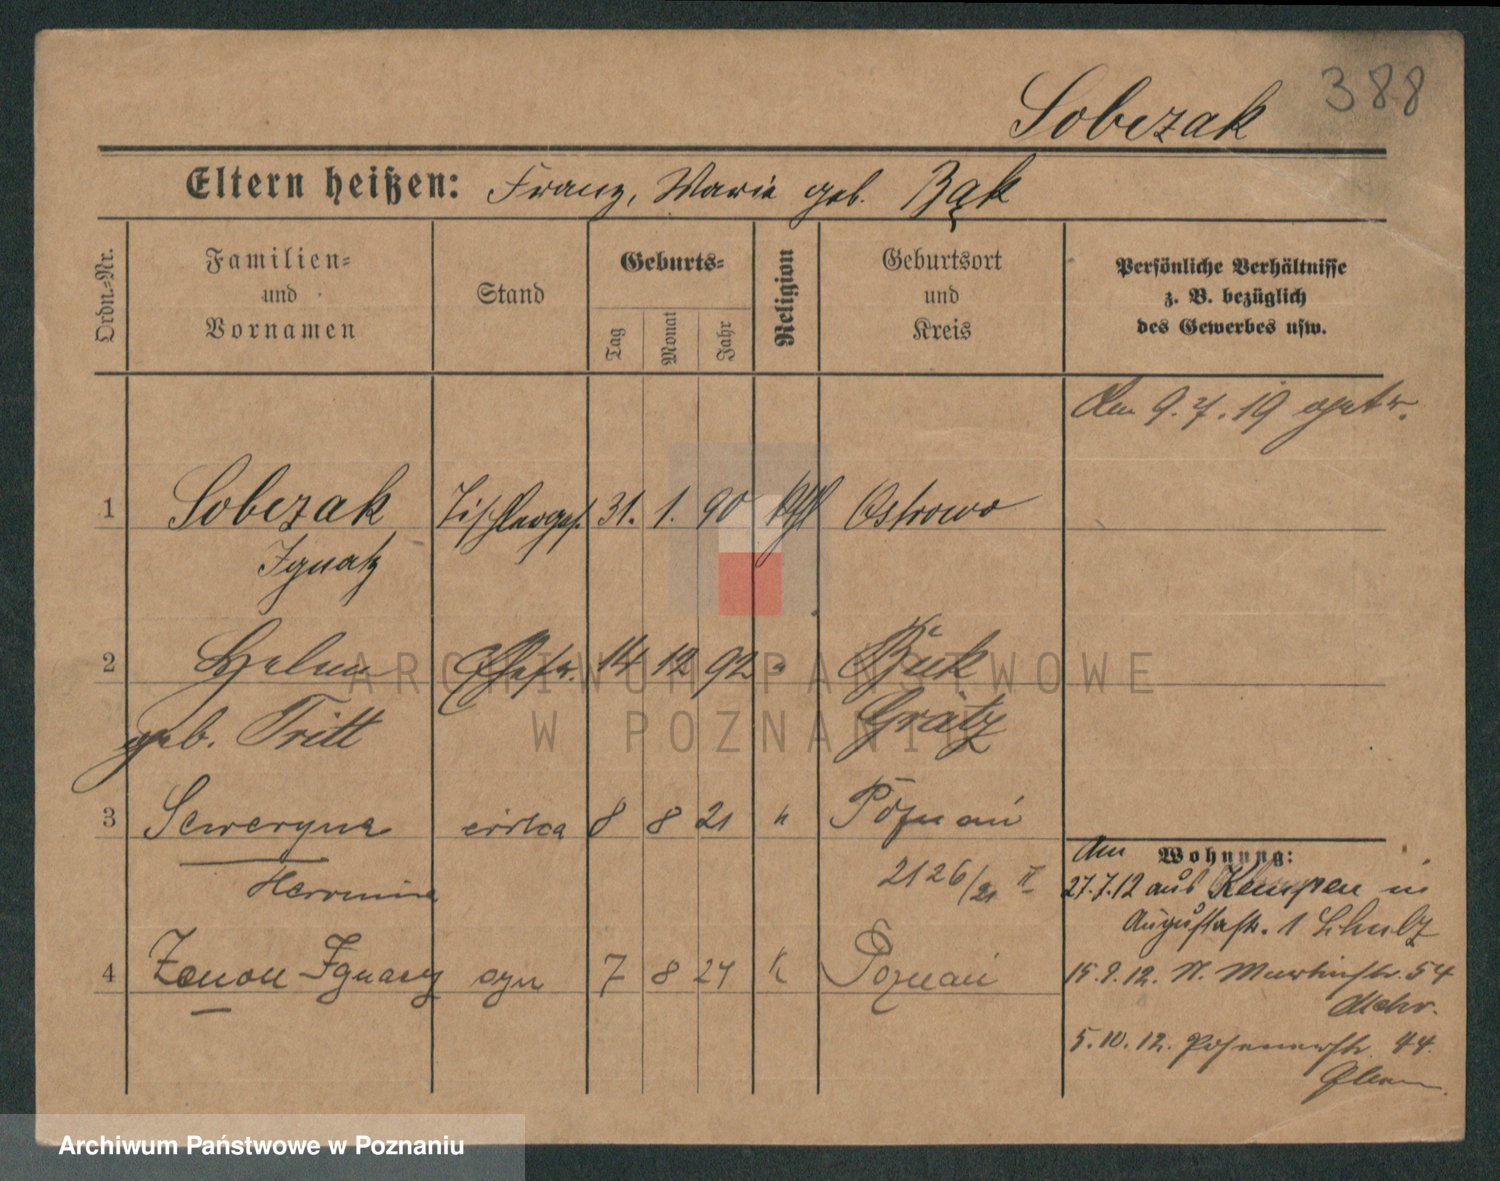 388
Sobczak
Eltern heißen: Franz, Marie geb. Bąk
Ordn.-Nr.
Familien- und Vornamen
Stand
Geburts-
Tag
Monat
Jahr
Religion
Geburtsort und Kreis
Persönliche Verhältnisse z. B. bezüglich des Gewerbes usw.
Den 9.7.19
1 Sobczak Tischlerges. 31. 1. 90 kth Ostrowo
Ignatz
2 Helene Ehefr. 14 12 92 " Buk
geb. Tritt Grätz
3 Seweryna córka 8 8 21 " Poznań
Hieronima 2126/21 II
4 Zenon Ignacy syn 7 8 24 k Poznań
Am Wohnung:
27.7.12 aus Kempen in
Augustastr. 1 Schulz
15.9.12. St. Martinstr. 54
5.10.12. Posenerstr. 44
ARCHIWUM PAŃSTWOWE
W POZNANIU
Archiwum Państwowe w Poznaniu